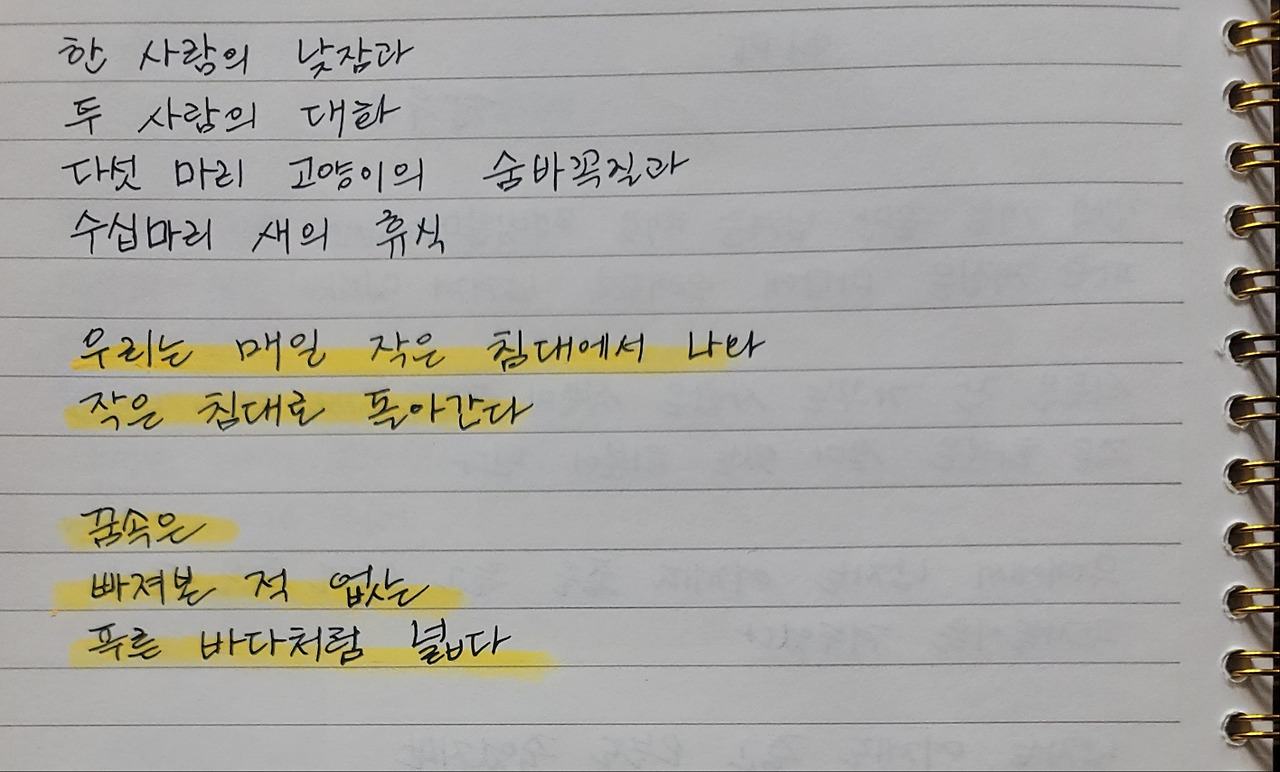 한 사람의 낮잠과
두 사람의 대화
다섯 마리 고양이의 숨바꼭질과
수십마리 새의 휴식
우리는 매일 작은 침대에서 나와
작은 침대로 돌아간다
꿈속은
빠져본 적 없는
푸른 바다처럼 넓다